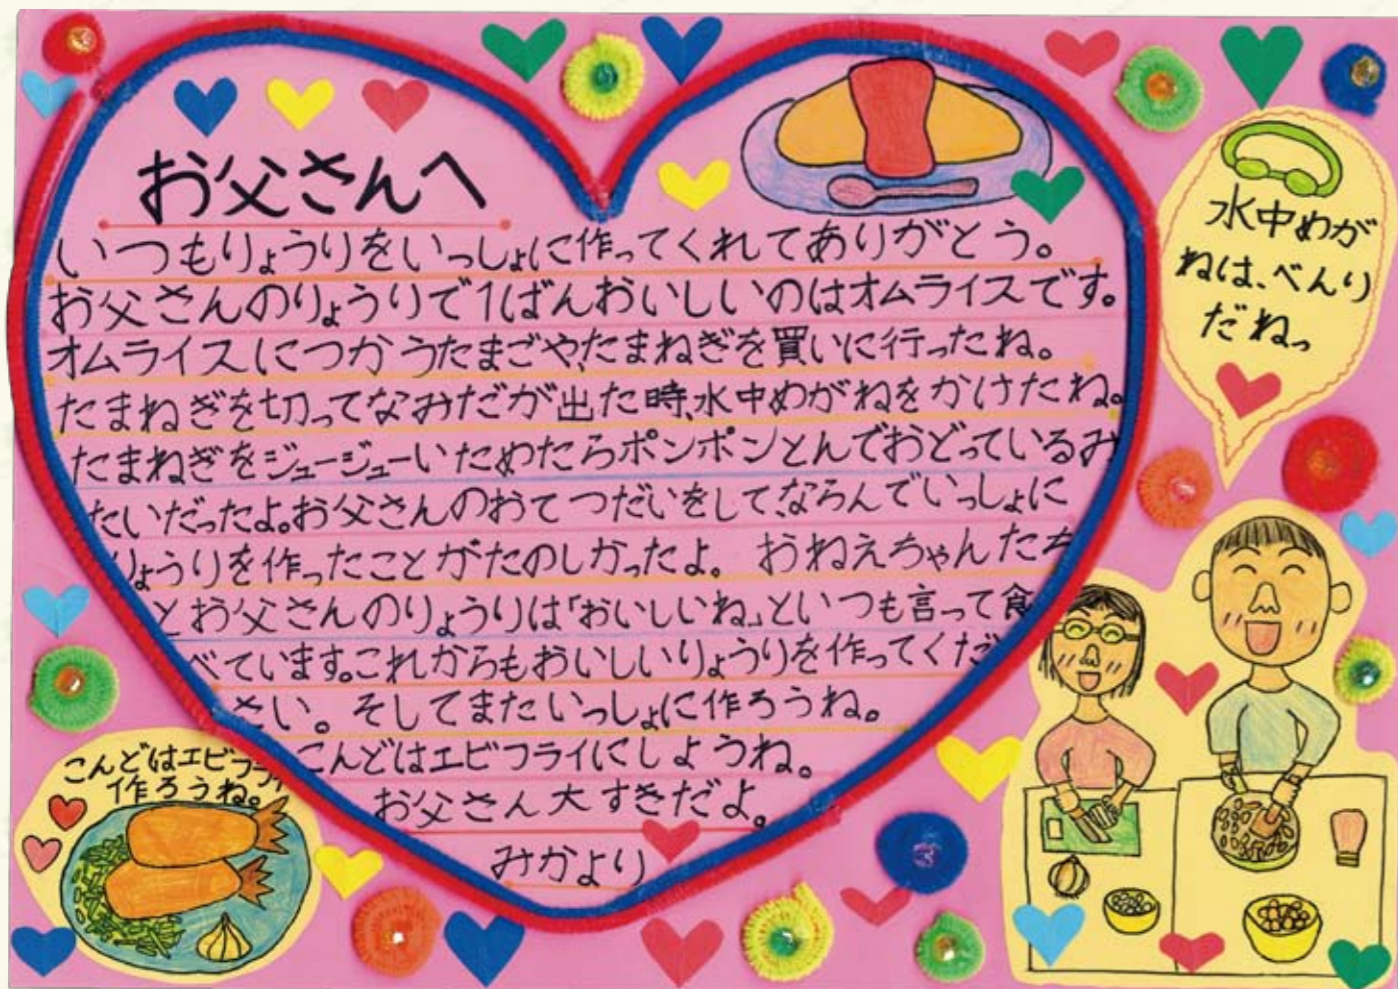 お父さんへ
いつもりょうりをいっしょに作ってくれてありがとう。
お父さんのりょうりで1ばんおいしいのはオムライスです。
オムライスにつかうたまごや、たまねぎを買いに行ったね。
たまねぎを切ってなみだが出た時、水中めがねをかけたね。
たまねぎをジュージューいためたらポンポンとんでおどっているみ
たいだったよ。お父さんのおてつだいをして、ならんでいっしょに
りょうりを作ったことがたのしかったよ。おねえちゃんたち
とお父さんのりょうりは「おいしいね」といつも言って食
べています。これからもおいしいりょうりを作ってくだ
さい。そしてまたいっしょに作ろうね。
こんどはエビフライにしようね。
お父さん大すきだよ。
みかより
水中めが
ねは、べんり
だねっ
こんどはエビフライ
作ろうね。